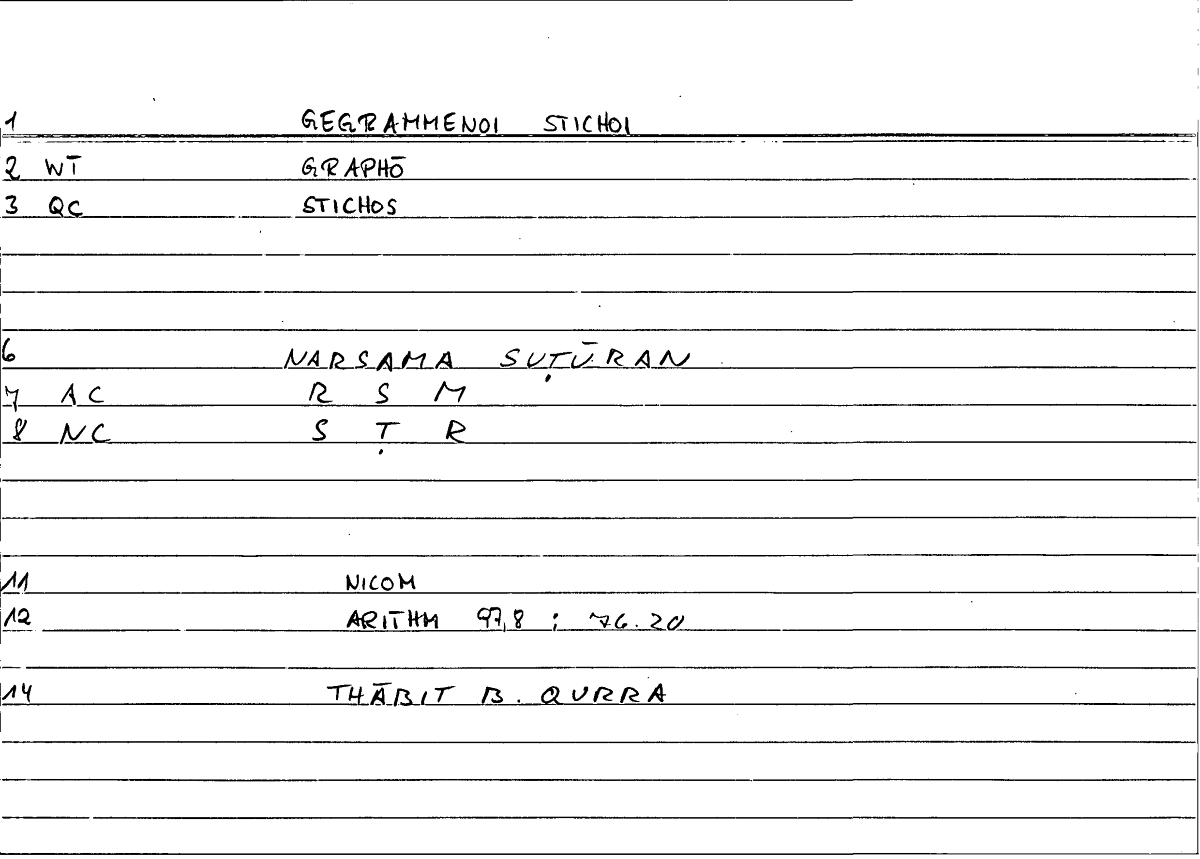 1 GEGRAMMENOI STICHOI
2 WT GRAPHŌ
3 QC STICHOS
6 NARSAMA SUṬŪRAN
7 AC R S M
8 NC S Ṭ R
11 NICOM
12 ARITHM 97,8 : 76.20
14 THĀBIT B. QURRA